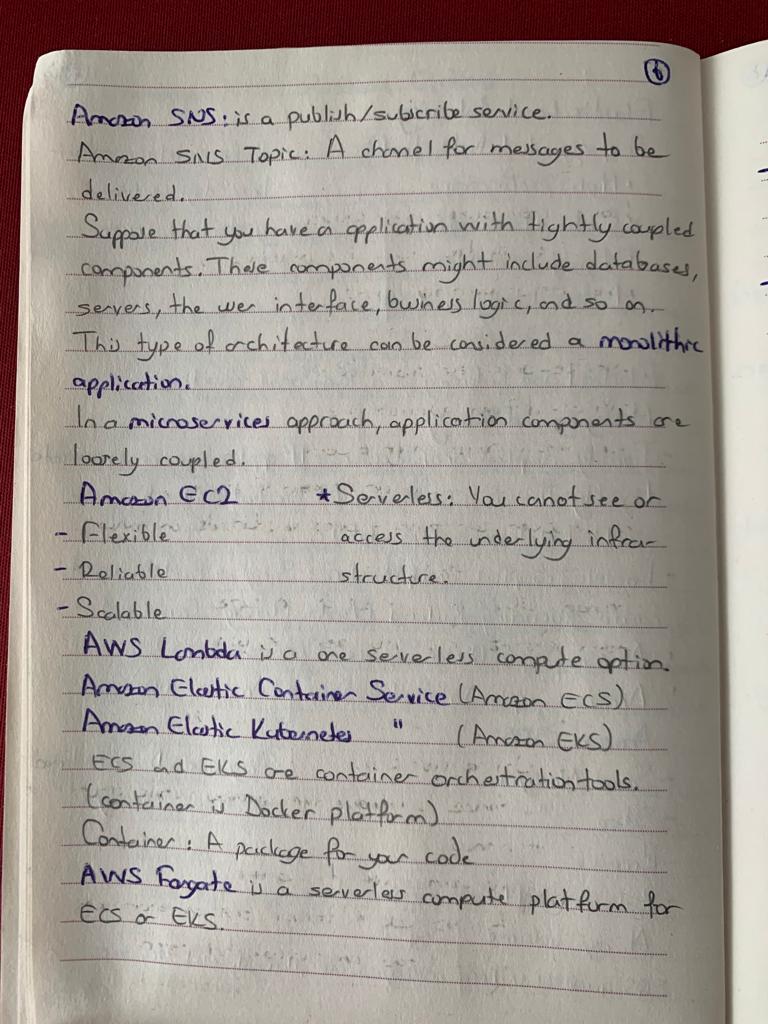 6
Amazon SNS: is a publish/subscribe service.
Amazon SNS Topic: A chanel for messages to be
delivered.
Suppose that you have a application with tightly coupled
components. These components might include databases,
servers, the user interface, business logic, and so on.
This type of architecture can be considered a monolithic
application.
In a microservices approach, application components are
loosely coupled.
Amazon EC2 * Serverless: You canot see or
- Flexible access the underlying infra-
- Reliable structure.
- Scalable
AWS Lambda is a one serverless compute option.
Amazon Elastic Container Service (Amazon ECS)
Amazon Elastic Kubernetes " (Amazon EKS)
ECS and EKS are container orchestration tools.
(container is Docker platform)
Container: A package for your code
AWS Fargate is a serverless compute platform for
ECS or EKS.